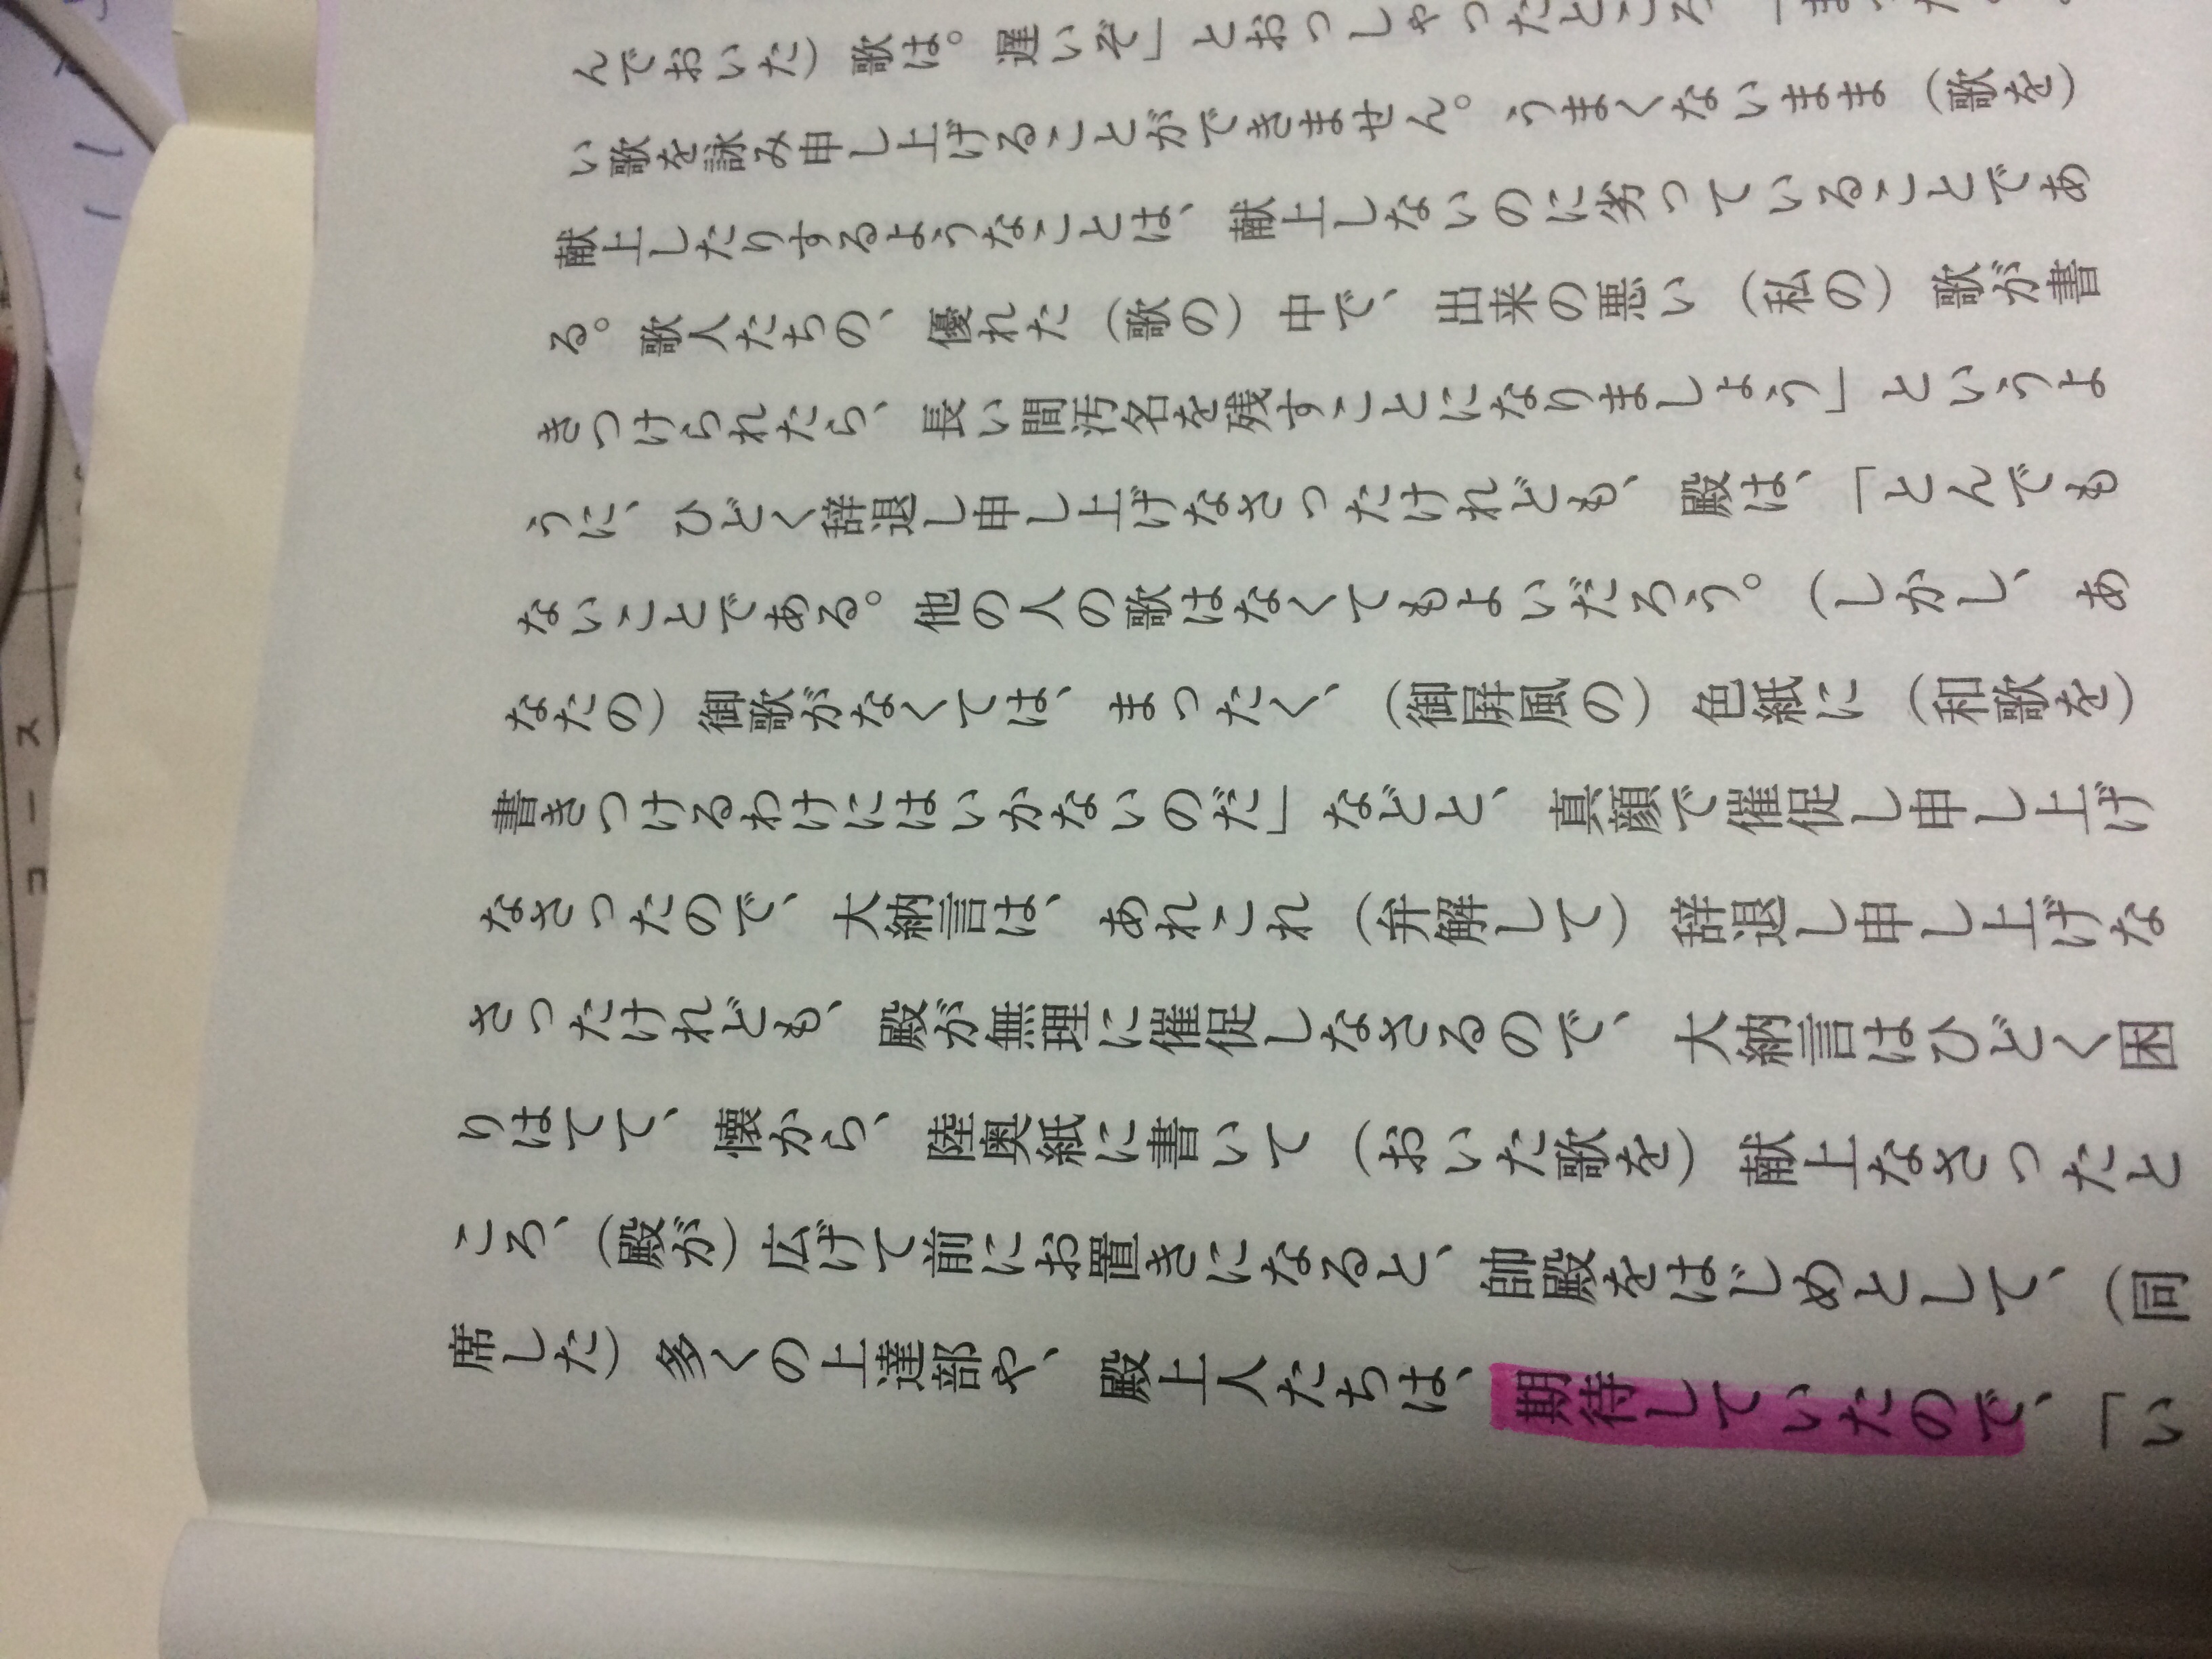 んでおいた）歌は。遅いぞ」とおっしゃったところ
い歌を詠み申し上げることができません。うまくないまま（歌を）
献上したりするようなことは、献上しないのに劣っていることであ
る。歌人たちの、優れた（歌の）中で、出来の悪い（私の）歌が書
きつけられたら、長い間汚名を残すことになりましょう」というよ
うに、ひどく辞退し申し上げなさったけれども、殿は、「とんでも
ないことである。他の人の歌はなくてもよいだろう。（しかし、あ
なたの）御歌がなくては、まったく、（御屛風の）色紙に（和歌を）
書きつけるわけにはいかないのだ」などと、真顔で催促し申し上げ
なさったので、大納言は、あれこれ（弁解して）辞退し申し上げな
さったけれども、殿が無理に催促しなさるので、大納言はひどく困
りはてて、懐から、陸奥紙に書いて（おいた歌を）献上なさったと
ころ、（殿が）広げて前にお置きになると、帥殿をはじめとして、（同
席した）多くの上達部や、殿上人たちは、期待していたので、「い
コース